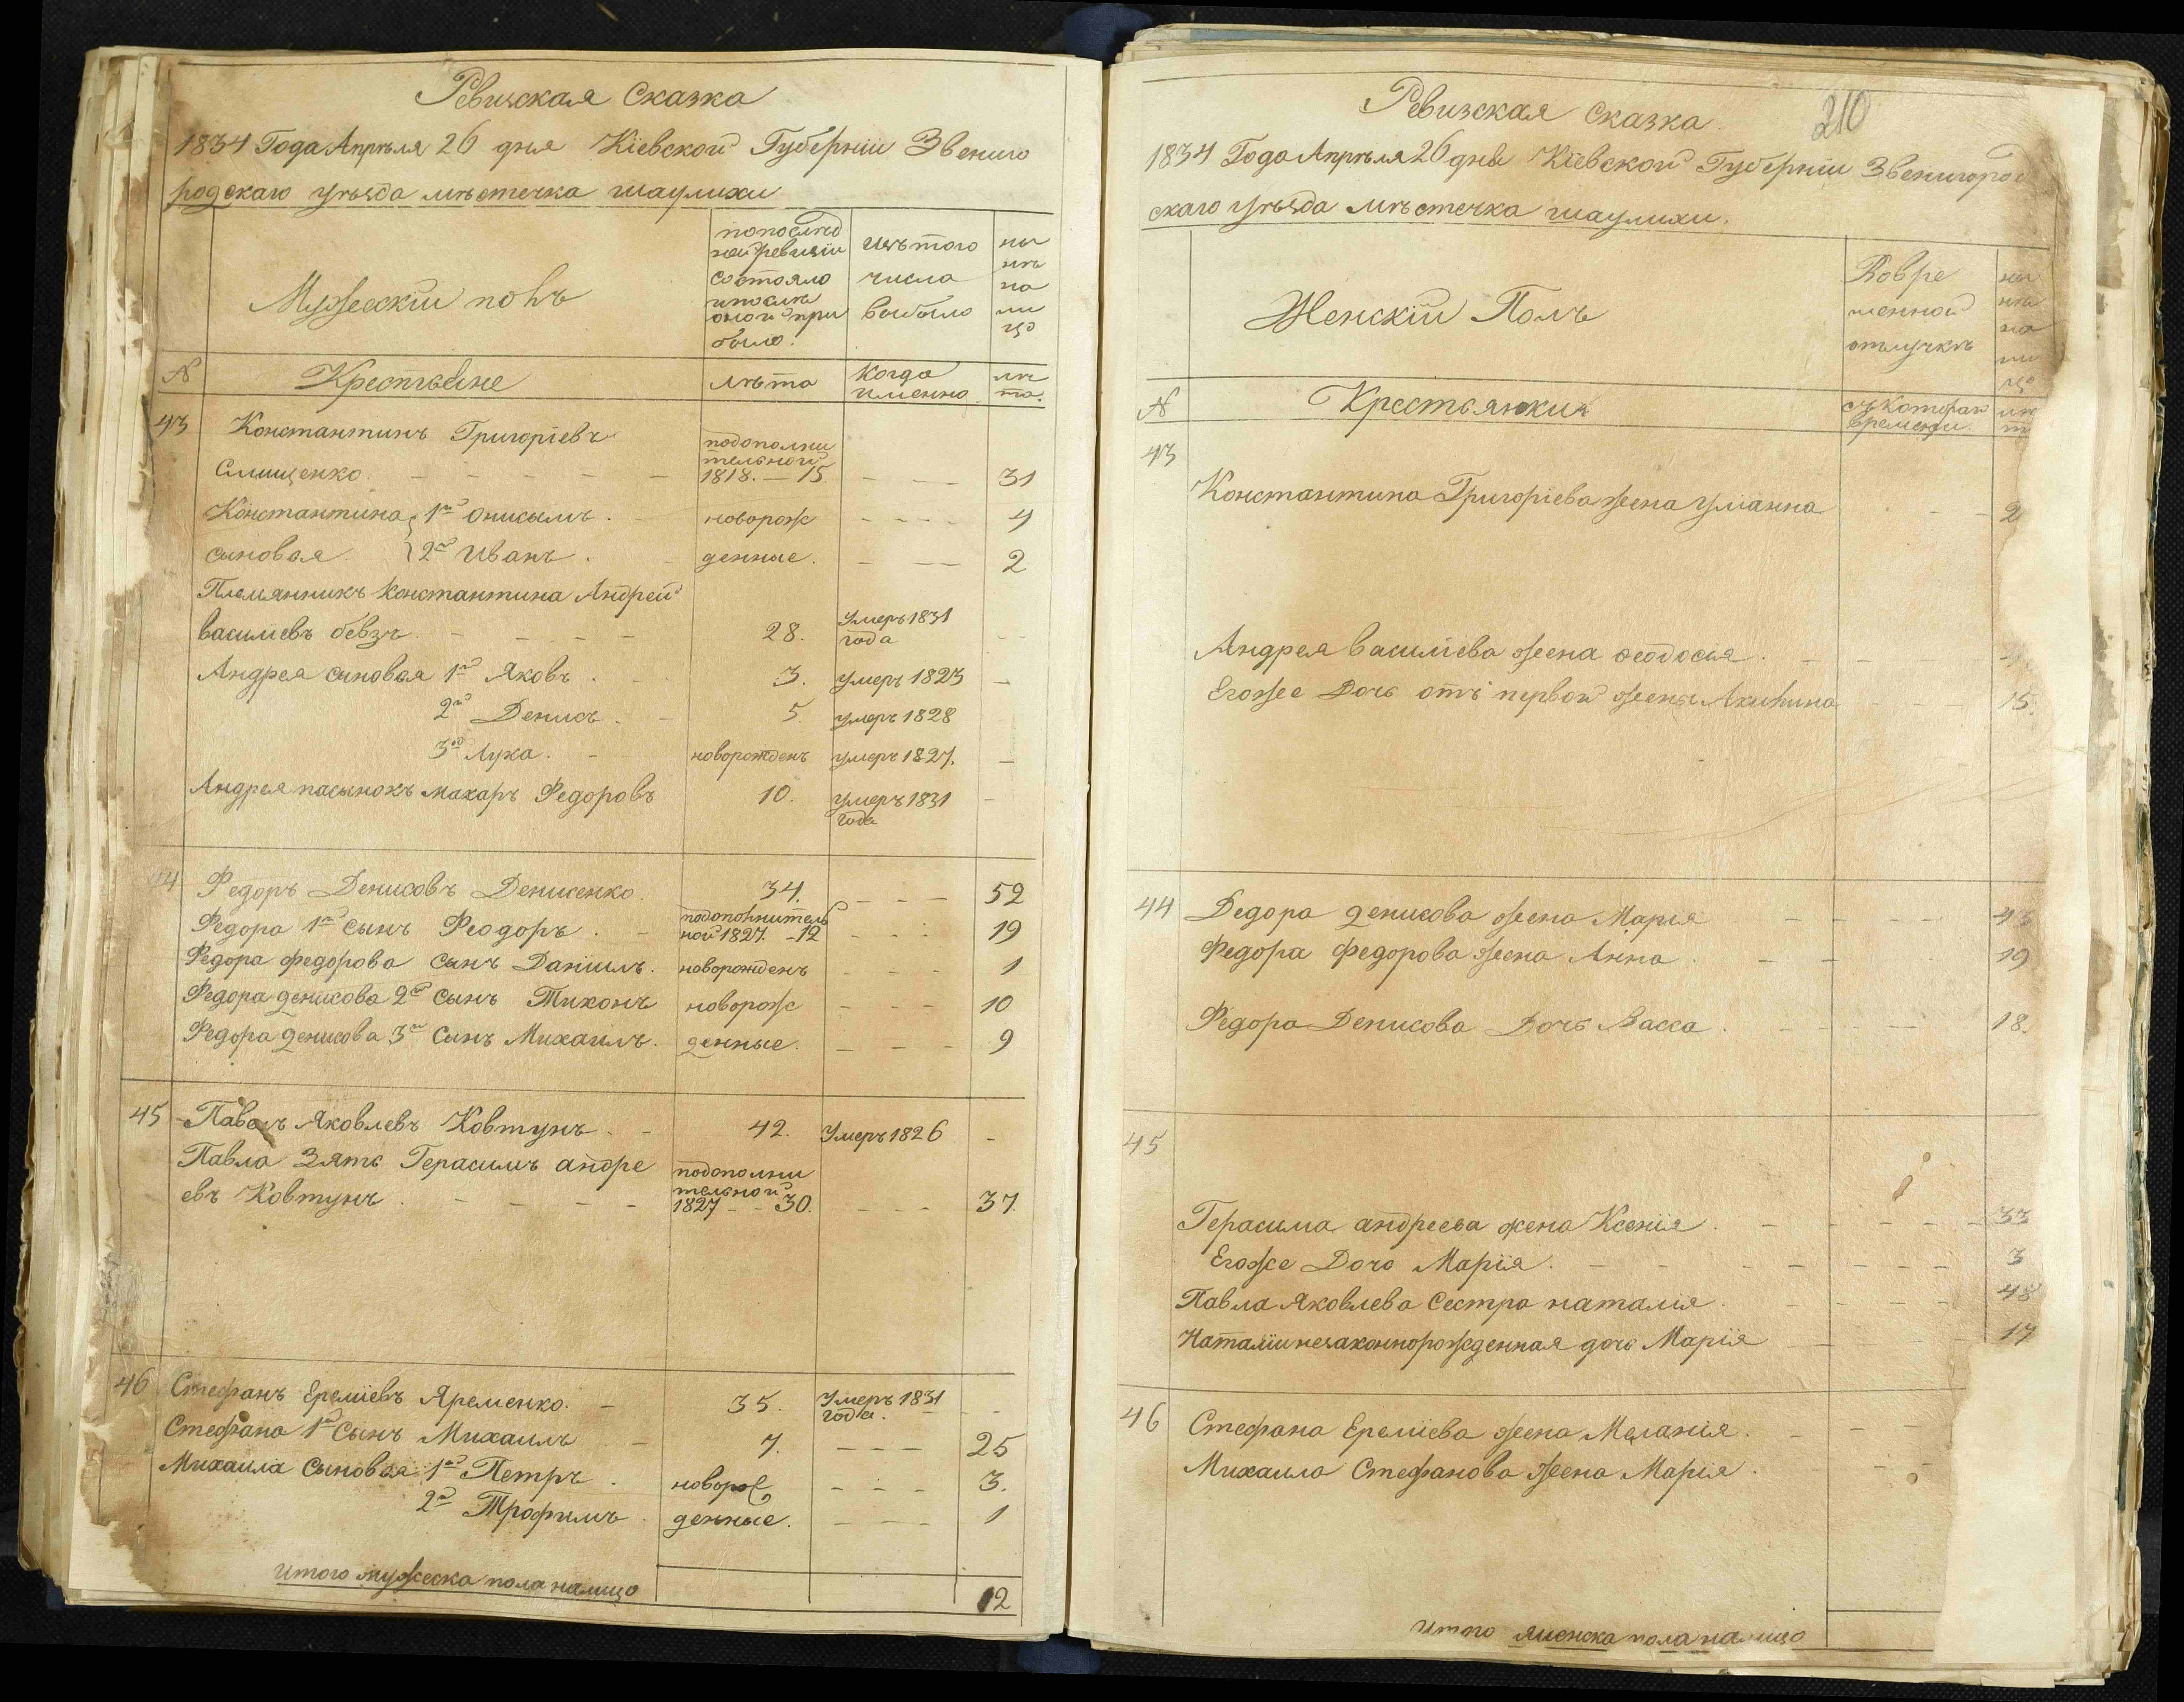 Ревизская Сказка
1834 Года Апрѣля 26 дня Кіевской Губерніи Звениго
родскаго уѣзда мѣстечка шаулихи
Мужескій полъ
попослѣд
ней ревизіи
состояло
ипослѣ
оной при
было.
изъ того
числа
выбыло
ны
нѣ
на
ли
цо
№
Крестьяне
лѣта
когда
именно
лѣ
та.
43 Константинъ Григоріевъ
Слищенко. подополни
тельной
1818. — 15. 31
Константина 1й Онисымъ. новорож 4
сыновья 2й Иванъ. денные. 2
Племянникъ Константина Андрей
василіевъ бевзъ 28. Умеръ 1831
года
Андрея сыновья 1й Яковъ. 3. умеръ 1823
2й Денисъ. 5. умеръ 1828
3й Лука. новорожденъ умеръ 1827.
Андрея пасынокъ макаръ Федоровъ 10. умеръ 1831
года
44 Федоръ Денисовъ Денисенко. 34. 52
Федора 1й сынъ Феодоръ. подополнитель
ной 1827. - 12 19
Федора федорова сынъ Даніилъ. новорожденъ 1
Федора денисова 2й сынъ Тихонъ новорож 10
Федора денисова 3й сынъ Михаилъ. денные. 9
45 Павелъ Яковлевъ Ковтунъ. 42. Умеръ 1826
Павла Зять Герасимъ андре
евъ Ковтунъ. подополни
тельной
1827 - - 30. 37.
46 Стефанъ Ереміевъ Яременко. 35. Умеръ 1831
года.
Стефана 1й сынъ Михаилъ 7. 25
Михаила сыновья 1й Петръ. новорож 3.
2й Трофимъ. денные. 1
итого мужеска пола налицо 12
210
Ревизская сказка
1834 Года Апрѣля 26 дня Кіевской Губерніи Звенигород
скаго уѣзда мѣстечка шаулихи.
Женскій Полъ
Вовре
менной
отлучкѣ
ны
нѣ
на
ли
цо
№
Крестьянки
съ котораго
времени.
лѣ
43
Константина Григоріева жена Уліанна 2
Андрея василіева жена феодосья.
Егоже Дочь отъ первой жены Акилина 15.
44 Федора денисова жена Марія 43
Федора федорова жена Анна. 19
Федора Денисова Дочь Васса. 18.
45
Герасима андреева жена Ксенія. 33
Егоже Дочь Марія. 3
Павла Яковлева Сестра наталія. 48
Наталіи незаконнорожденная дочь Марія 17
46 Стефана Ереміева жена Меланія.
Михаила Стефанова жена Марія.
итого женска пола налицо